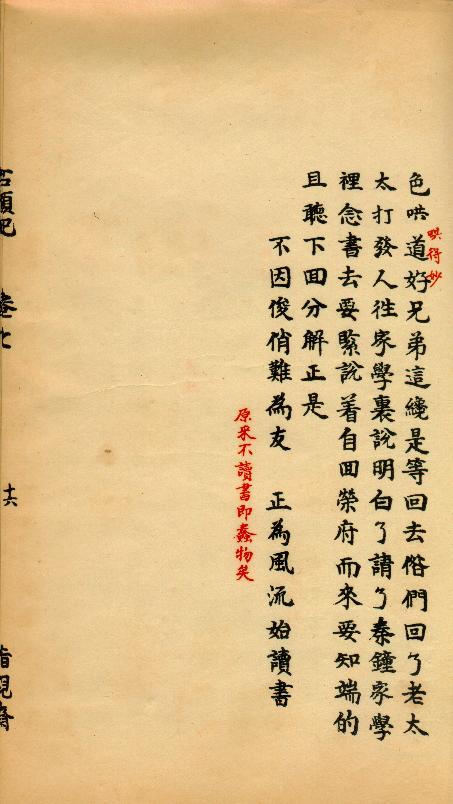 哄得妙
色哄道好兄弟這纔是等回去偺們回了老太
太打發人徃家學裏說明白了請了秦鐘家學
裡念書去要緊說着自回榮府而來要知端的
且聽下回分解正是
不因俊俏難為友　正為風流始讀書
原来不讀書即蠢物矣
石頭記　卷七　十六　脂硯齋